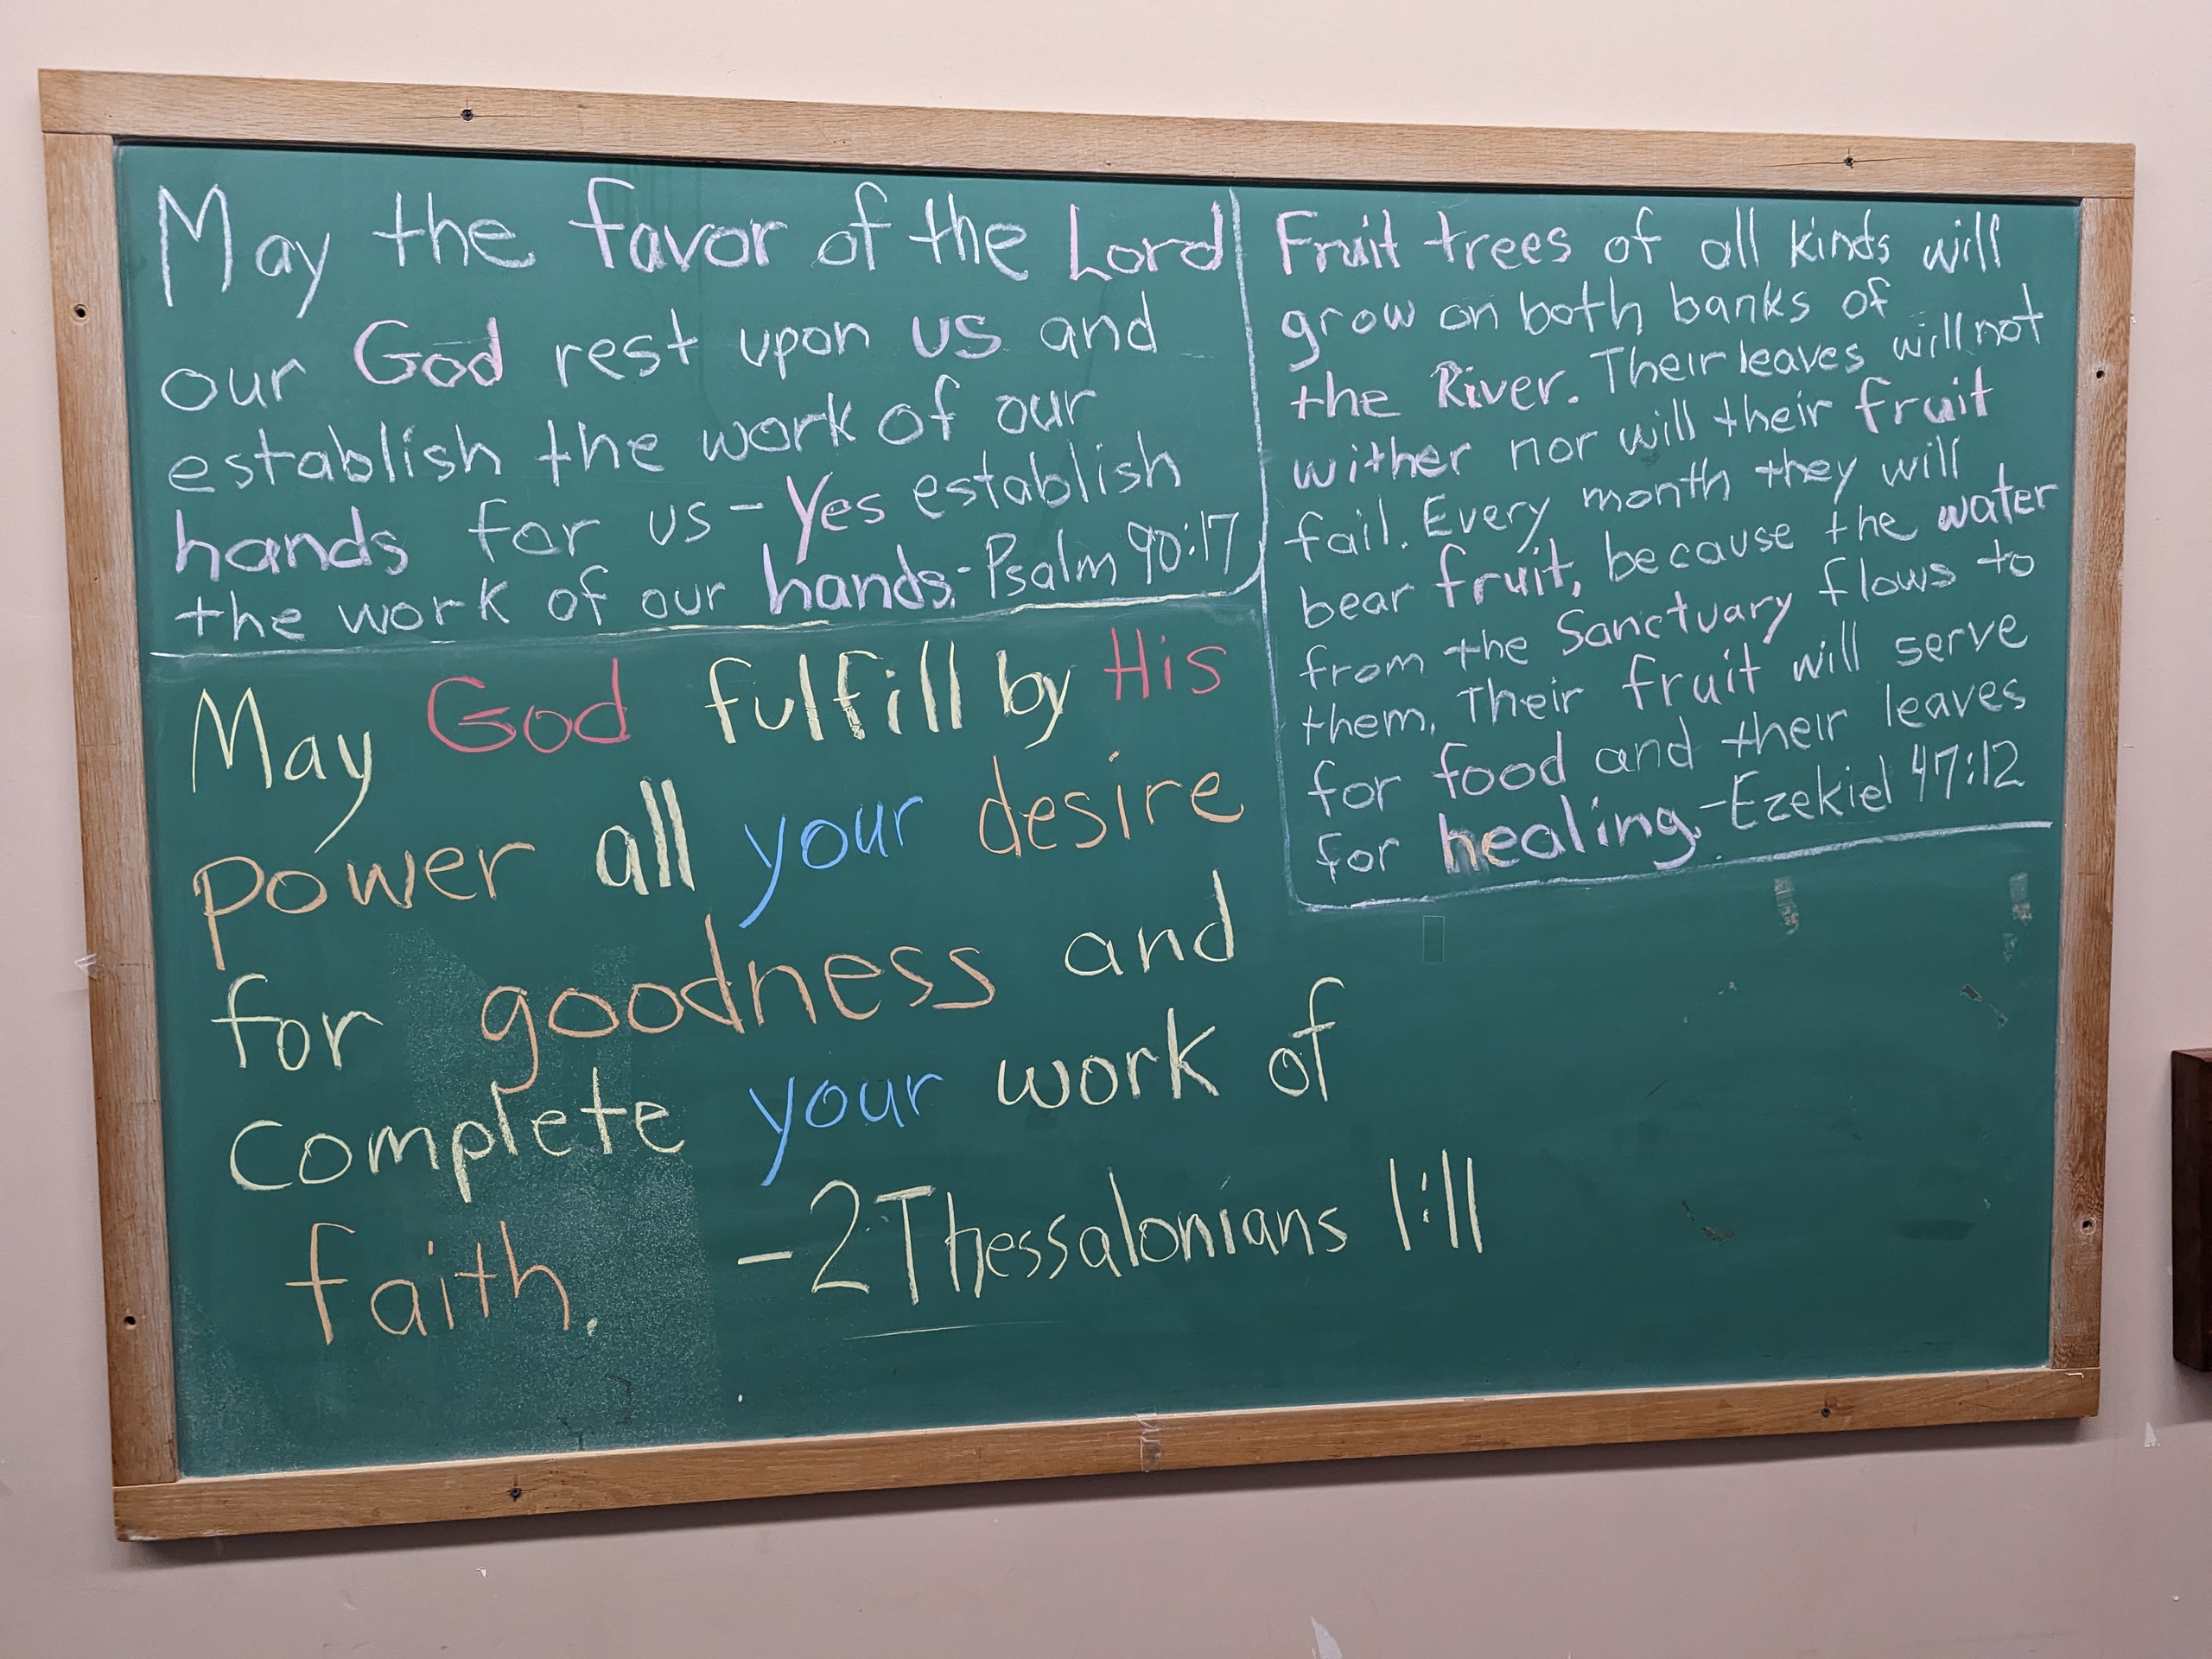 May the favor of the Lord
our God rest upon us and
establish the work of our
hands for us - Yes establish
the work of our hands. - Psalm 90:17
May God fulfill by His
power all your desire
for goodness and
complete your work of
faith. - 2 Thessalonians 1:11
Fruit trees of all kinds will
grow on both banks of
the River. Their leaves will not
wither nor will their fruit
fail. Every month they will
bear fruit, because the water
from the Sanctuary flows to
them. Their fruit will serve
for food and their leaves
for healing. - Ezekiel 47:12